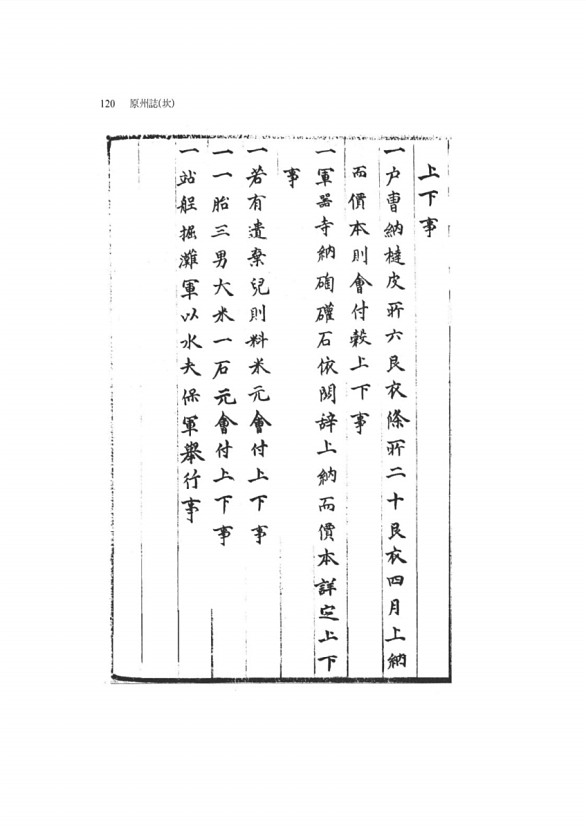 120 原州誌(坎)
上下事
一戶曺納樾皮所六艮衣條所二十艮衣四月上納
而價本則會付穀上下事
一軍器寺納磠礶石依関辞上納而價本詳定上下
事
一若有遺棄兒則料米元會付上下事
一一胎三男大米一石元會付上下事
一站舡掘灘軍以水夫保軍擧行事